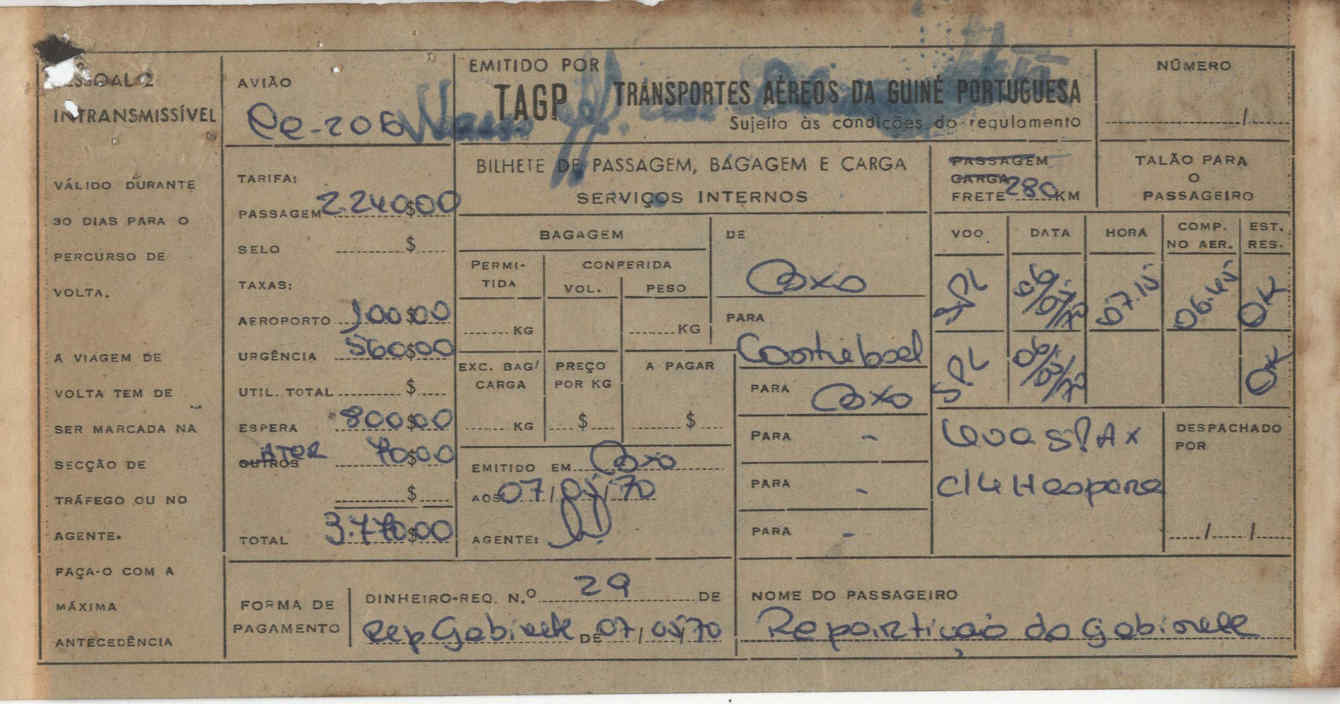 PESSOAL E
INTRANSMISSÍVEL
VÁLIDO DURANTE
30 DIAS PARA O
PERCURSO DE
VOLTA.
A VIAGEM DE
VOLTA TEM DE
SER MARCADA NA
SECÇÃO DE
TRÁFEGO OU NO
AGENTE.
FAÇA-O COM A
MÁXIMA
ANTECEDÊNCIA
AVIÃO
-206
TARIFA:
PASSAGEM 2.240$00
SELO $
TAXAS:
AEROPORTO 100$00
URGÊNCIA 560$00
UTIL. TOTAL $
ESPERA 800$00
OUTROS 70$00
$
TOTAL 3.770$00
EMITIDO POR
TAGP TRANSPORTES AÉREOS DA GUINÉ PORTUGUESA
Sujeito às condições do regulamento
BILHETE DE PASSAGEM, BAGAGEM E CARGA
SERVIÇOS INTERNOS
PASSAGEM
CARGA
FRETE 280 KM
NÚMERO
/
TALÃO PARA
O
PASSAGEIRO
BAGAGEM
PERMI-
TIDA
CONFERIDA
VOL. PESO
KG KG
EXC. BAG/
CARGA
PREÇO
POR KG
A PAGAR
KG $ $
EMITIDO EM
AOS 07/05/70
AGENTE:
DE
PARA
PARA
PARA -
PARA -
PARA -
VOO DATA HORA COMP. NO AER. EST. RES.
SPL 07.15 06.45 OK
SPL OK
c/4H espera
DESPACHADO
POR
/ /
FORMA DE
PAGAMENTO
DINHEIRO-REQ. N.º 29 DE
Rep Gabinete DE 07/05/70
NOME DO PASSAGEIRO
Repartição do Gabinete